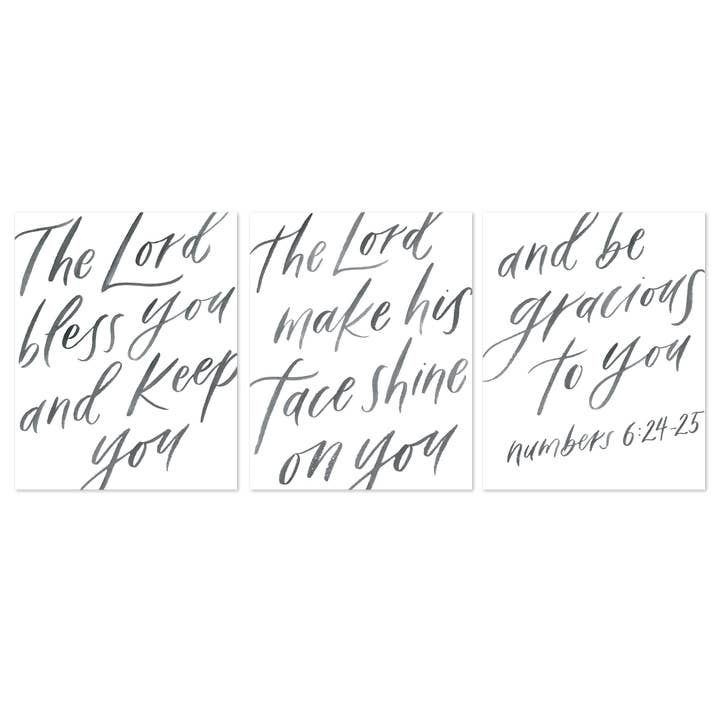 The Lord
bless you
and keep
you
the Lord
make his
face shine
on you
and be
gracious
to you
numbers 6:24-25